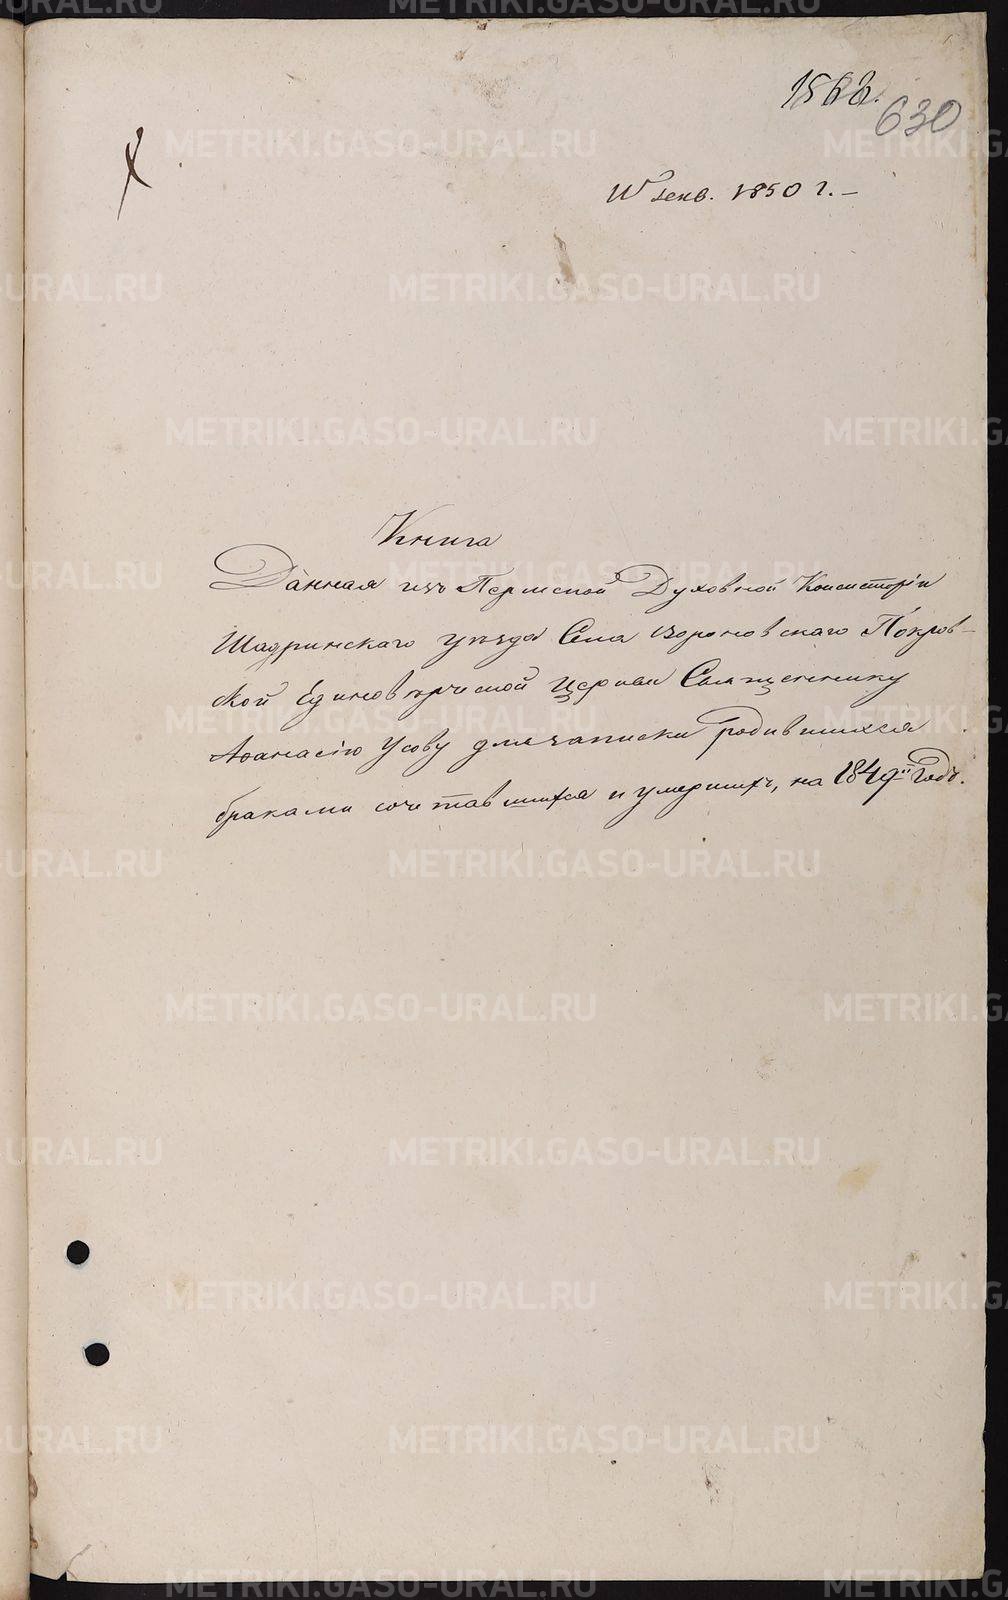 1566.
630
генв. 1850 г. –
Книга
Данная изъ Пермской Духовной Консисторіи
Шадринскаго уѣзда Села Вороновскаго Покров-
ской Единовѣрческой Церкви Священнику
Аѳанасію Усову для записки родившихся
браками сочетавшихся и умершихъ, на 1849й Годъ.
METRIKI.GASO-URAL.RU